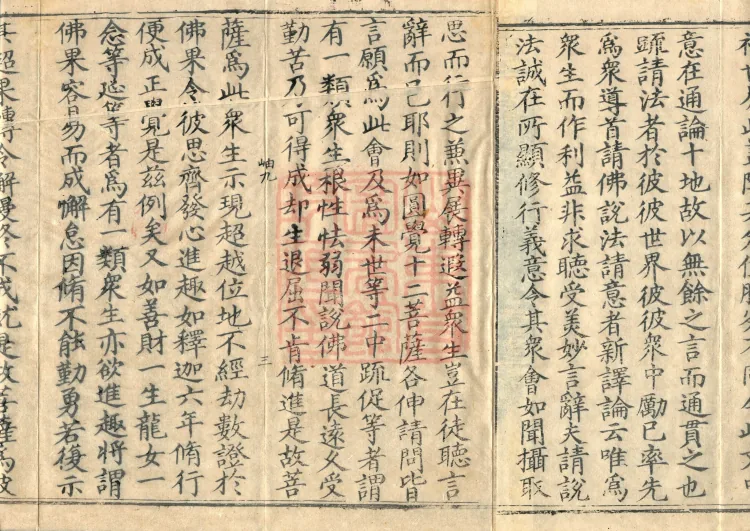 意在通論十地故以無餘之言而通貫之也
䟽請法者於彼彼世界彼彼衆中勵已率先
爲衆導首請佛說法請意者新譯論云唯爲
衆生而作利益非求聽受美妙言辭夫請說
法誠在所顯修行義意令其衆會如聞攝取
思而行之兼異展轉遐益衆生豈在徒聽言
辭而已耶則如圓覺十二菩薩各伸請問皆
言願爲此會及爲未世等二中䟽促等者謂
有一類衆生根性怯弱聞說佛道長遠久受
勤苦乃可得成却生退屈不肯脩進是故菩
岫九
三
薩爲此衆生示現超越位地不經劫數證於
佛果令彼思齊發心進趣如釋迦六年脩行
便成正覺是茲例矣又如善財一生龍女一
念等延等者爲有一類衆生亦欲進趣將謂
佛果容易而成懈怠因脩不能勤勇若復示